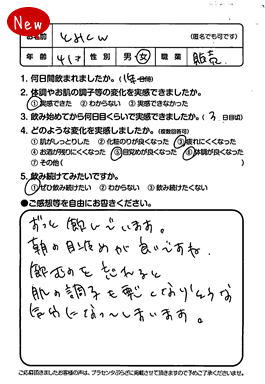 New
お名前 とみこw (匿名でも可です)
年齢 41才 性別 男・女 職業 販売
1. 何日間飲まれましたか。(1年 日間)
2. 体調やお肌の調子等の変化を実感できましたか。
①実感できた ②わからない ③実感できなかった
3. 飲み始めてから何日目くらいで実感できましたか。( 3 日目頃)
4. どのような変化を実感しましたか。(複数回答可)
①肌がしっとりした ②化粧のりが良くなった ③疲れにくくなった
④お酒が残りにくくなった ⑤目覚めが良くなった ⑥体調が良くなった
⑦その他(
5. 飲み続けてみたいですか。
①ぜひ飲み続けたい ②わからない ③飲み続けたくない
●ご感想等を自由にお書きください。
ずっと飲んでいます。
朝の目覚めが良いですね。
飲むのを忘れると
肌の調子も悪くなりそうな
気分になってしまいます。
ご応募頂きましたお客様の声は、プラセンタぷらざに掲載させて頂きますので予めご了承くださいませ。